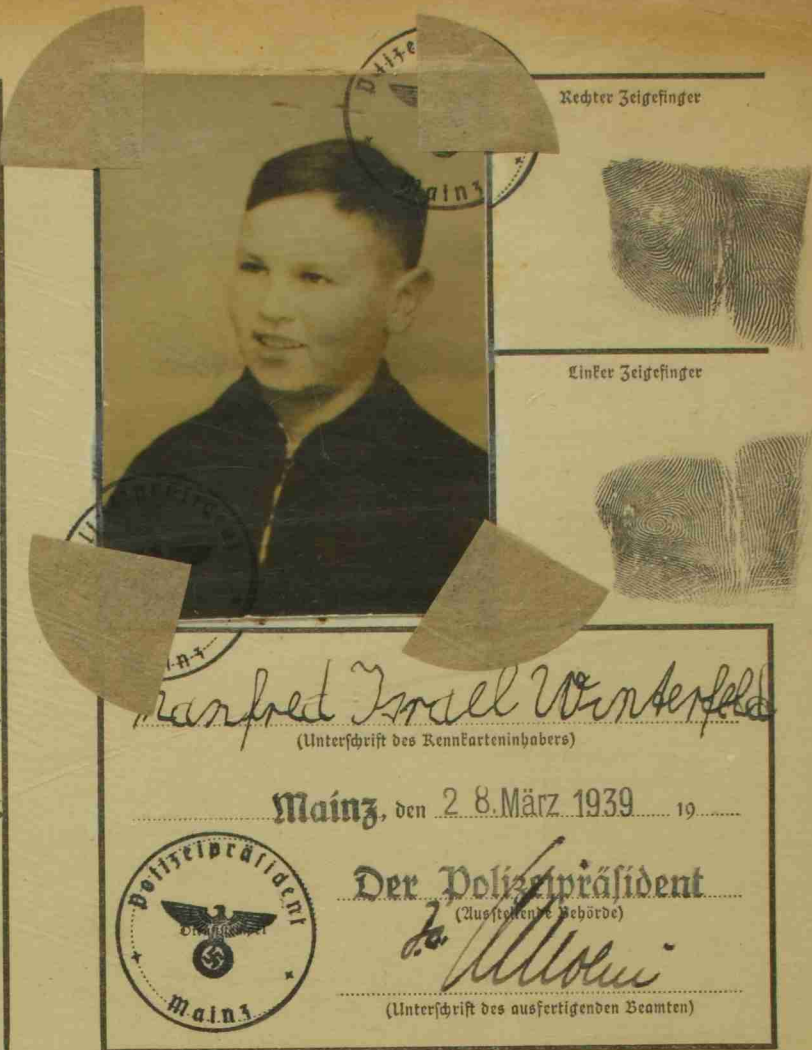 Polize
Mainz
Rechter Zeigefinger
Linker Zeigefinger
Manfred Israel Winterfeld
(Unterschrift des Kennkarteninhabers)
Mainz, den 28. März 1939 19
Der Polizeipräsident
(Ausstellende Behörde)
(Unterschrift des ausfertigenden Beamten)
Polizeipräsident
Mainz